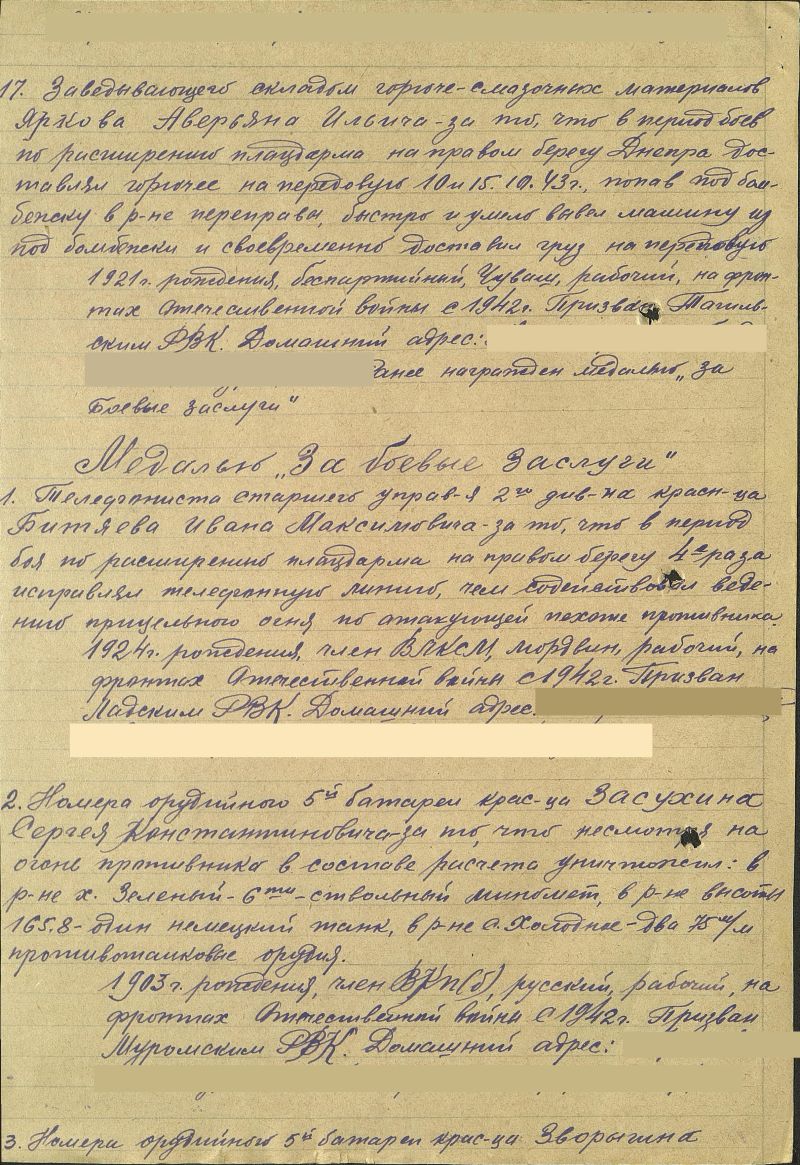 17. Заведывающего складом горюче-смазочных материалов
Яркова Аверьяна Ильича - за то, что в период боев
по расширению плацдарма на правом берегу Днепра дос-
тавлял горючее на передовую 10 и 15.10.43 г., попав под бом-
бежку в р-не переправы, быстро и умело вывел машину из
под бомбежки и своевременно доставил груз на передовую
1921 г. рождения, беспартийный, Чуваш, рабочий, на фрон-
тах Отечественной войны с 1942 г. Призван Тагиль-
ским РВК. Домашний адрес:
Ранее награжден медалью „За
Боевые заслуги"
Медалью „За боевые заслуги"
1. Телефониста старшего управ-я 2го див-на красн-ца
Битяева Ивана Максимовича - за то, что в период
боя по расширению плацдарма на правом берегу 4е раза
исправлял телефонную линию, чем содействовал веде-
нию прицельного огня по атакующей пехоте противника.
1924 г. рождения, член ВЛКСМ, мордвин, рабочий, на
фронтах Отечественной войны с 1942 г. Призван
Ладским РВК. Домашний адрес.
2. Номера орудийного 5й батареи крас-ца Засухина
Сергея Константиновича - за то, что несмотря на
огонь противника в составе расчета уничтожил: в
р-не х. Зеленый - 6ти - ствольный миномет, в р-не высоты
165.8 - один немецкий танк, в р-не с. Холодные - два 75 м/м
противотанковые орудия.
1903 г. рождения, член ВКП(б), русский, рабочий, на
фронтах Отечественной войны с 1942 г. Призван
Муромским РВК. Домашний адрес:
3. Номера орудийного 5й батареи крас-ца Зворыгина